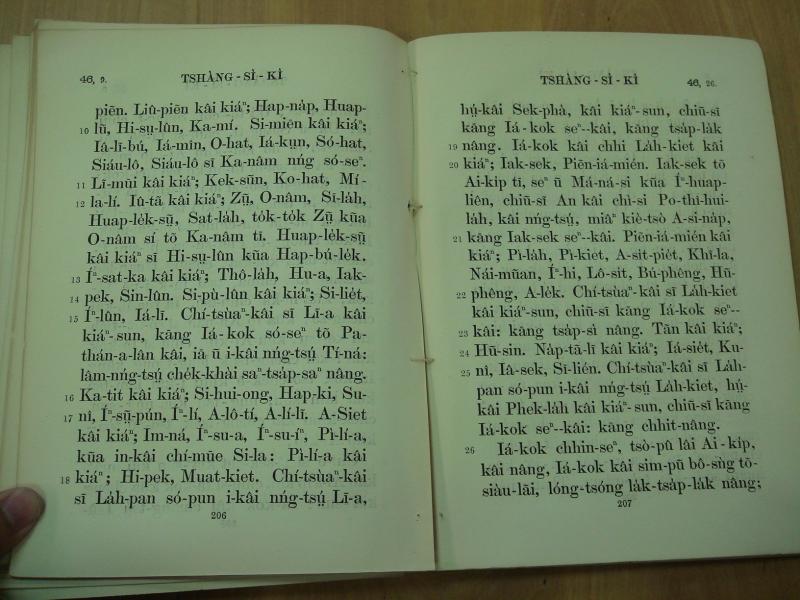 46, 9.
TSHÀNG-SÌ-KÌ
piēn. Liû-piēn kâi kiáⁿ; Hap-na̍p, Huap-
10 lū, Hi-sṳ-lûn, Ka-mí. Si-miēn kâi kiáⁿ;
Iâ-lī-bú, Iá-mîn, O-hat, Iá-kṳn, Só-hat,
Siáu-lô, Siáu-lô sī Ka-nâm nńg só-seⁿ.
11 Lī-mūi kâi kiáⁿ; Kek-sūn, Ko-hat, Mí-
12 la-lí. Iû-tā kâi kiáⁿ; Zṳ̄, O-nâm, Sī-lâh,
Huap-le̍k-sṳ̄, Sat-la̍h, to̍k-to̍k Zṳ̄ kūa
O-nâm sí tō Ka-nâm tī. Huap-le̍k-sṳ̄
kâi kiáⁿ sī Hi-sṳ-lûn kūa Hap-bú-le̍k.
13 Íⁿ-sat-ka kâi kiáⁿ; Thô-la̍h, Hu-a, Iak-
14 pek, Sin-lûn. Si-pù-lûn kâi kiáⁿ; Si-lie̍t,
15 Íⁿ-lûn, Iá-lī. Chí-tsùaⁿ-kâi sī Lī-a kâi
kiáⁿ-sun, kāng Iá-kok só-seⁿ tō Pa-
thán-a-lân kâi, iā ū i-kâi nńg-tsṳ́ Tí-ná:
lâm-nńg-tsṳ́ che̍k-khài saⁿ-tsa̍p-saⁿ nâng.
16 Ka-tit kâi kiáⁿ; Si-hui-ong, Hap-ki, Su-
17 nî, Íⁿ-sṳ̄-pún, Íⁿ-lí, A-lô-tí, A-lí-lī. A-Siet
kâi kiáⁿ; Im-ná, Íⁿ-su-a, Íⁿ-su-íⁿ, Pì-lí-a,
kūa in-kâi chí-mūe Si-la: Pì-lí-a kâi
18 kiáⁿ; Hi-pek, Muat-kiet. Chí-tsùaⁿ-kâi
sī La̍h-pan só-pun i-kâi nńg-tsṳ́ Lī-a,
206
TSHÀNG-SÌ-KÌ
46, 26.
hṳ́-kâi Sek-phà, kâi kiáⁿ-sun, chiū-sī
kāng Iá-kok seⁿ--kâi, kāng tsa̍p-la̍k
19 nâng. Iá-kok kâi chhi La̍h-kiet kâi
20 kiáⁿ; Iak-sek, Piēn-iá-mién. Iak-sek tō
Ai-ki̍p tī, seⁿ ū Má-ná-si kūa Íⁿ-huap-
liên, chiū-sī An kâi chì-si Po-thî-hui-
la̍h, kâi nńg-tsṳ́, miâⁿ kiè-tsò A-si-na̍p,
21 kāng Iak-sek seⁿ--kâi. Piēn-iá-mién kâi
kiáⁿ; Pì-la̍h, Pì-kiet, A-sit-pie̍t, Khī-la,
Nái-mūan, Íⁿ-hi, Lô-sit, Bú-phêng, Hū-
22 phêng, A-le̍k. Chí-tsùaⁿ-kâi sī La̍h-kiet
kâi kiáⁿ-sun, chiū-sī kāng Iá-kok seⁿ--
23 kâi: kāng tsa̍p-sì nâng. Tān kâi kiáⁿ;
24 Hū-sin. Na̍p-tā-lī kâi kiáⁿ; Iá-sie̍t, Ku-
25 nî, Iâ-sek, Sī-lién. Chí-tsùaⁿ-kâi sī La̍h-
pan só-pun i-kâi nńg-tsṳ́ La̍h-kiet, hṳ́-
kâi Phek-la̍h kâi kiáⁿ-sun, chiū-sī kāng
Iá-kok seⁿ--kâi: kāng chhit-nâng.
26 Iá-kok chhin-seⁿ, tsò-pû lâi Ai-ki̍p,
kâi nâng, Iá-kok kâi sim-pū bô-sǹg tō-
siàu-lāi, lóng-tsóng la̍k-tsa̍p-la̍k nâng;
207